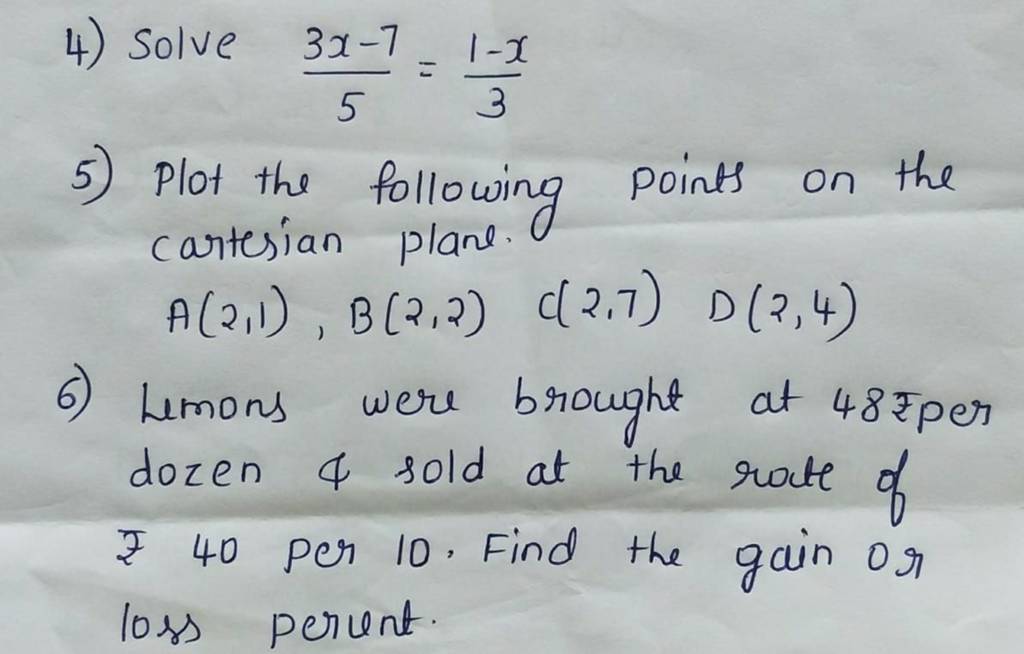 4) Solve 3x-7/5 = 1-x/3
5) Plot the following points on the
cartesian plane.
A(2,1), B(2,2) C(2,7) D(2,4)
6) Lemons were brought at 48₹ per
dozen & sold at the rate of
₹ 40 per 10. Find the gain or
loss percent.